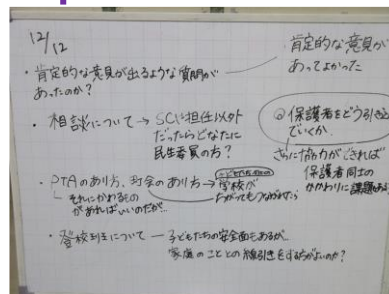 12/12
・肯定的な意見が出るような質問が
あったのか？
肯定的な意見が
あってよかった
・相談について→SCに担任以外
だったらどなたに
民生委員の方？
◎保護者をどう引き込ん
でいくか
さらに協力ができれば
保護者同士の
かかわりに課題もある
・PTAのあり方、町会のあり方→学校が
それにかわるもの
があればいいのだが…
・登校班について―子どもたちの安全面もあるが…
家庭のこととの線引きをする方がよいのか？